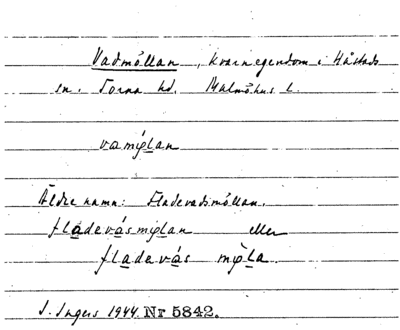 Vadmöllan, kvarnegendom i Håstads
sn. Torna hd. Malmöhus l.
vamýlan
Äldre namn: Fladevadsmöllan.
fladevásmýlan eller
fladevás mỳla.
I. Ingers 1944. Nr 5842.